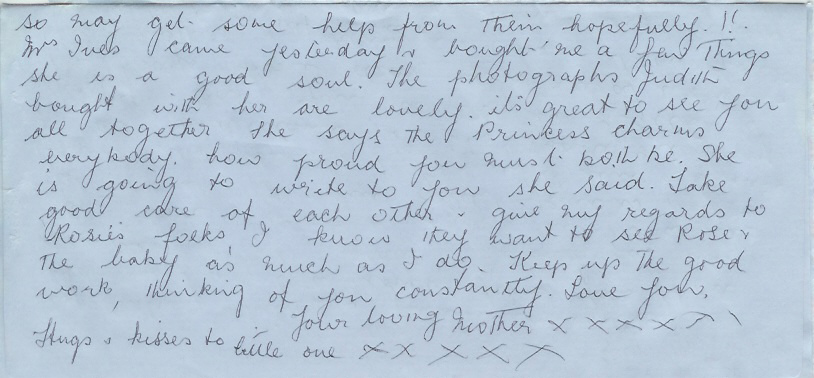 so may get some help from them hopefully. !!.
Mrs Ives came yesterday & bought me a few Things
she is a good soul. The photographs Judith
bought with her are lovely. it's great to see you
all together She says The Princess charms
everybody. how proud you must both be. She
is going to write to you she said. Take
good care of each other & give my regards to
Rosie's folks, I know they want to see Rose &
The baby as much as I do. Keep up The good
work, thinking of you constantly. Love you,
Your loving Mother x x x x x x \
Hugs & kisses to little one x x x x x